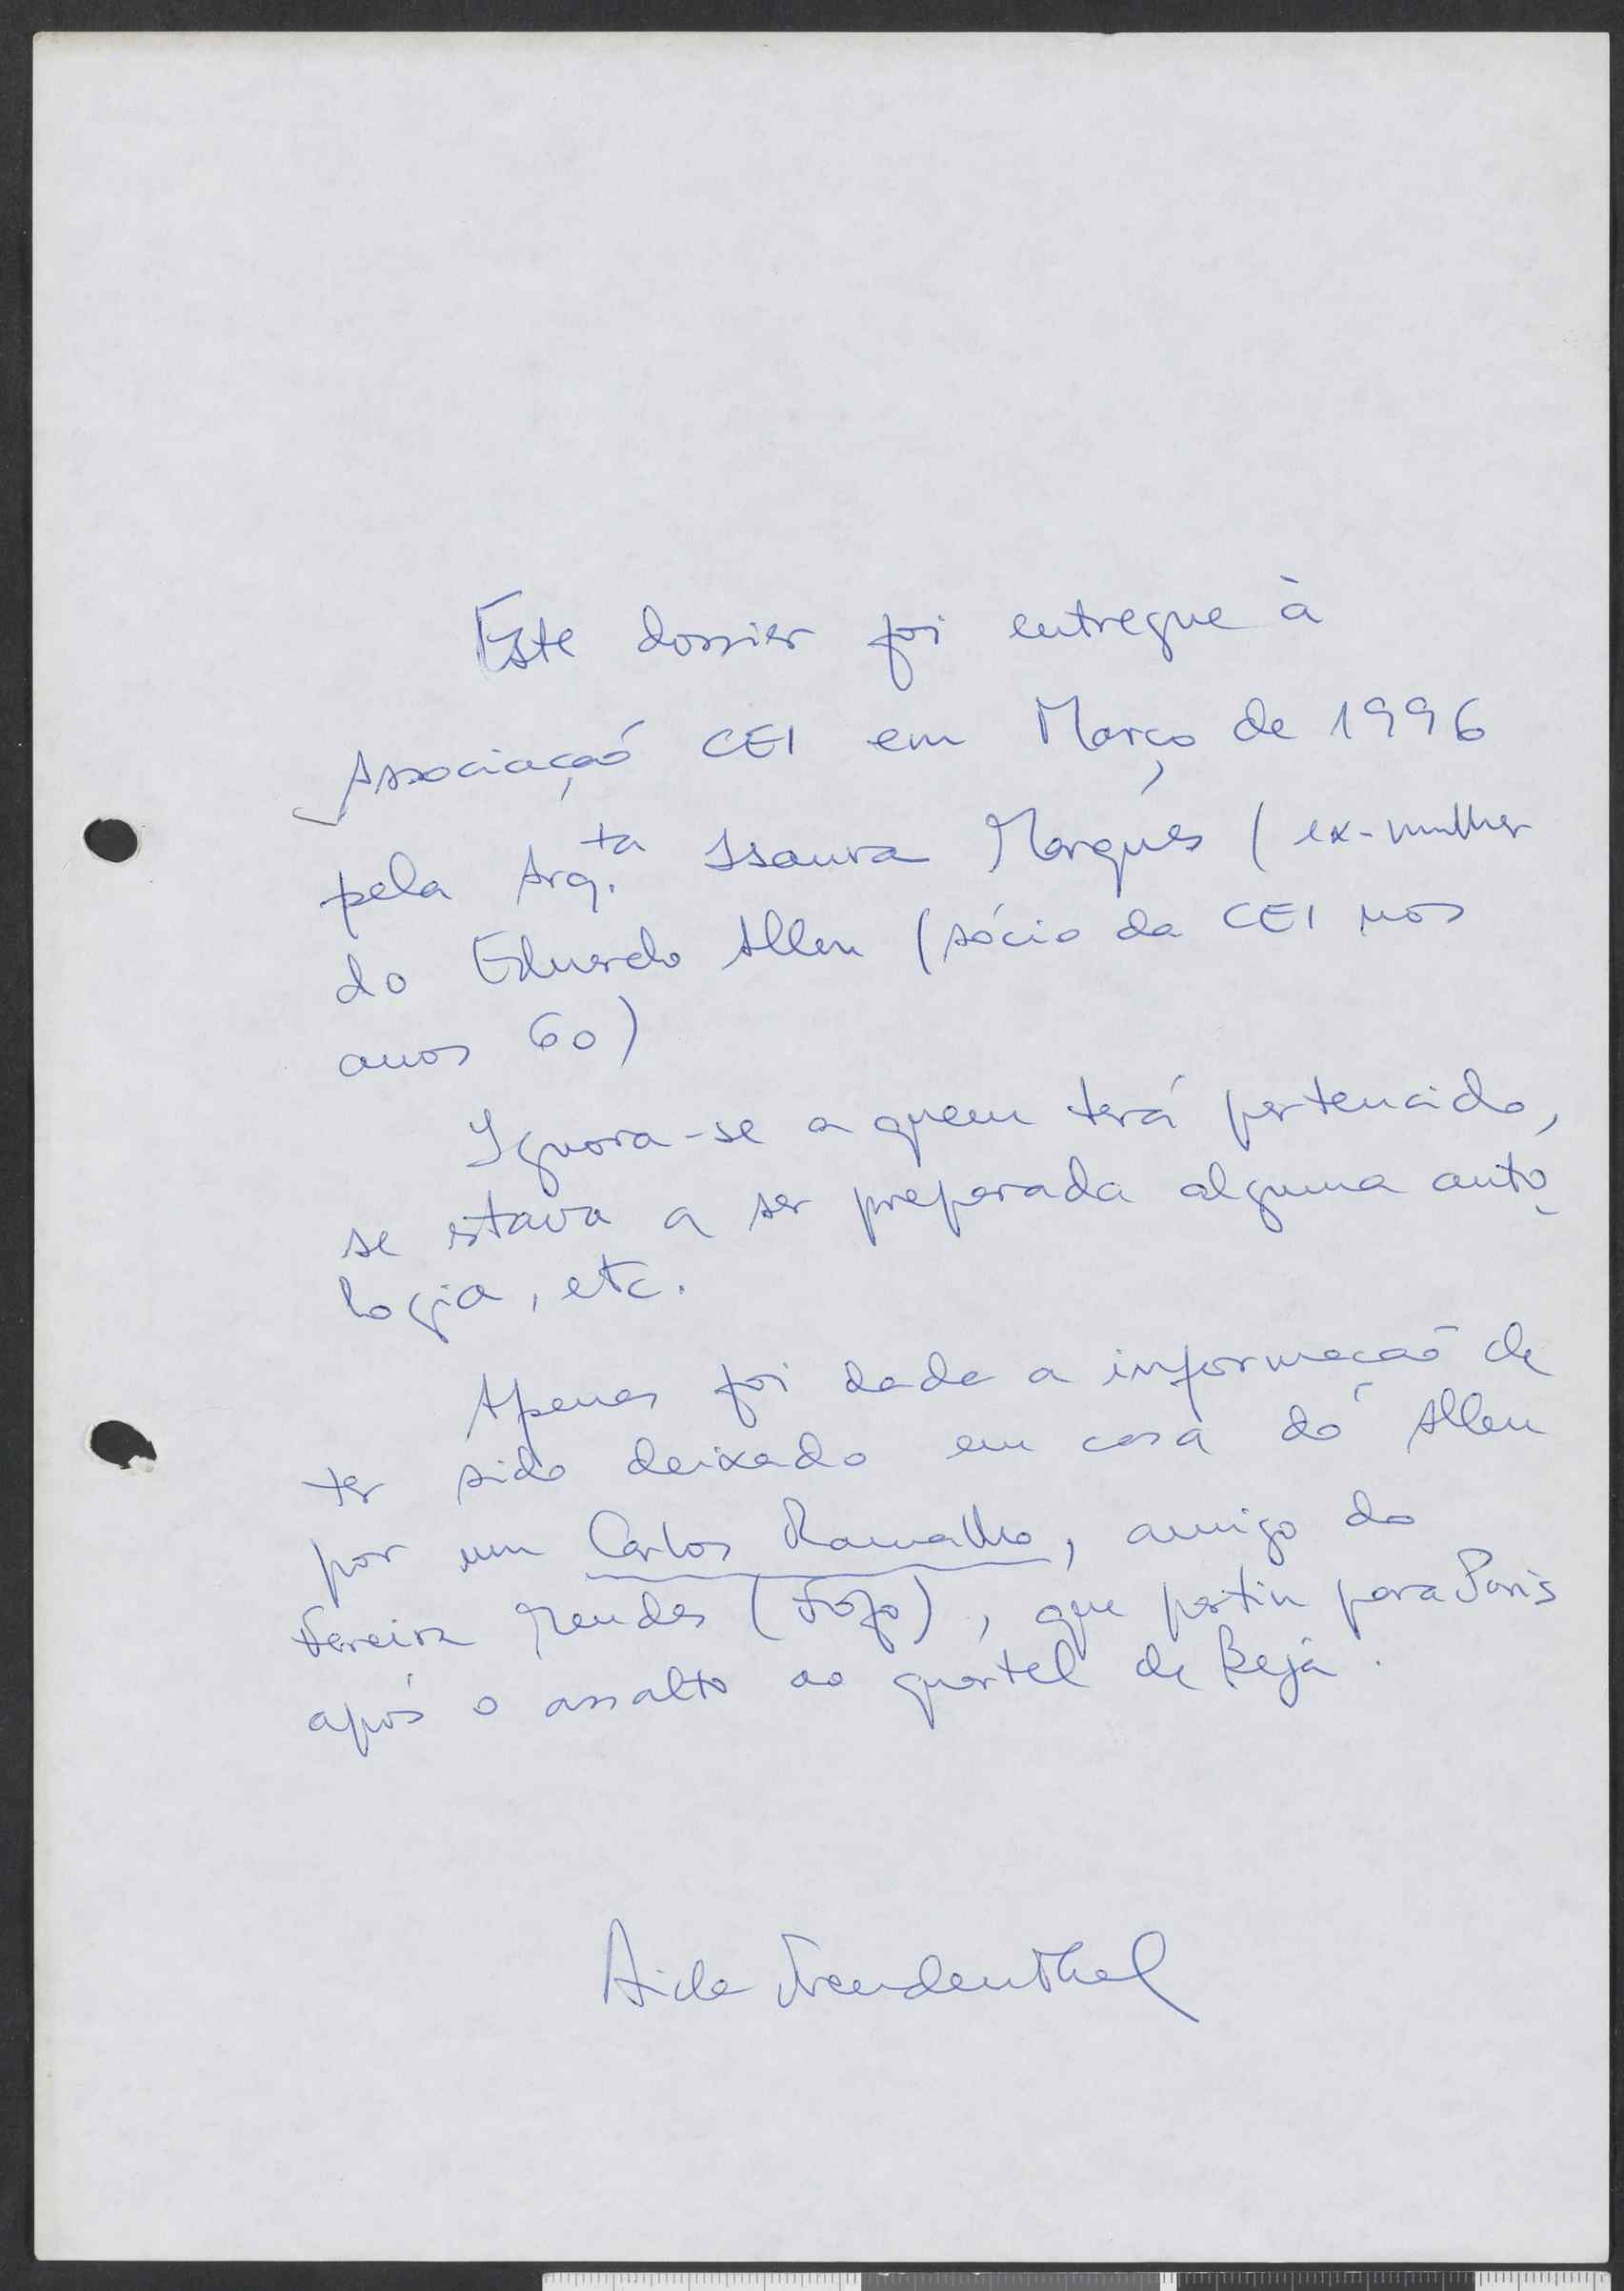 Este dossier foi entregue à
Associação CEI em Março de 1996
pela Arq.ta Isaura Marques (ex-mulher
do Eduardo Allen (sócio da CEI nos
anos 60)
Ignora-se a quem terá pertencido,
se estava a ser preparada alguma anto-
logia, etc.
Apenas foi dada a informação de
ter sido deixado em casa do Allen
por um Carlos Ramalho, amigo do
Ferreira Mendes (Fogo), que partiu para Paris
após o assalto ao quartel de Beja.
Aida Freudenthal